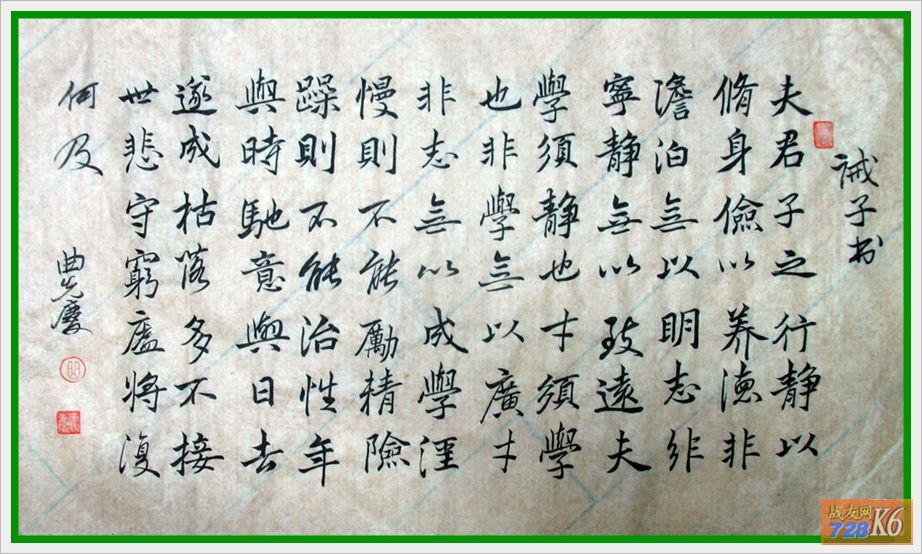 诫子书
夫君子之行静以
脩身儉以养德非
澹泊無以明志非
寧静無以致遠夫
學須静也才須學
也非學無以廣才
非志無以成學淫
慢則不能勵精險
躁則不能治性年
與時馳意與日去
遂成枯落多不接
世悲守窮廬将復
何及
战友网
728K6